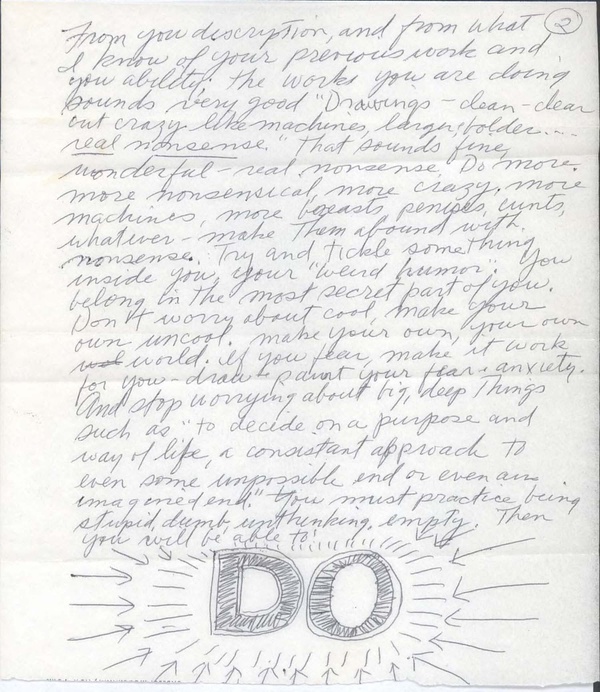 2
From you discription, and from what
I know of your previous work and
you ability; the works you are doing
sounds very good "Drawings - clean - clear
but crazy like machines, larger, bolder....
real nonsense." That sounds fine,
wonderful - real nonsense. Do more.
more nonsensical, more crazy, more
machines, more breasts, penises, cunts,
whatever - make them abound with
nonsense. Try and tickle something
inside you, your "weird humor." You
belong in the most secret part of you.
Don't worry about cool, make your
own uncool. make your own, your own
world. If you fear, make it work
for you - draw & paint your fear & anxiety.
And stop worrying about big, deep things
such as "to decide on a purpose and
way of life, a consistant approach to
even some impossible end or even an
imagined end." You must practice being
stupid, dumb, unthinking, empty. Then
you will be able to
DO